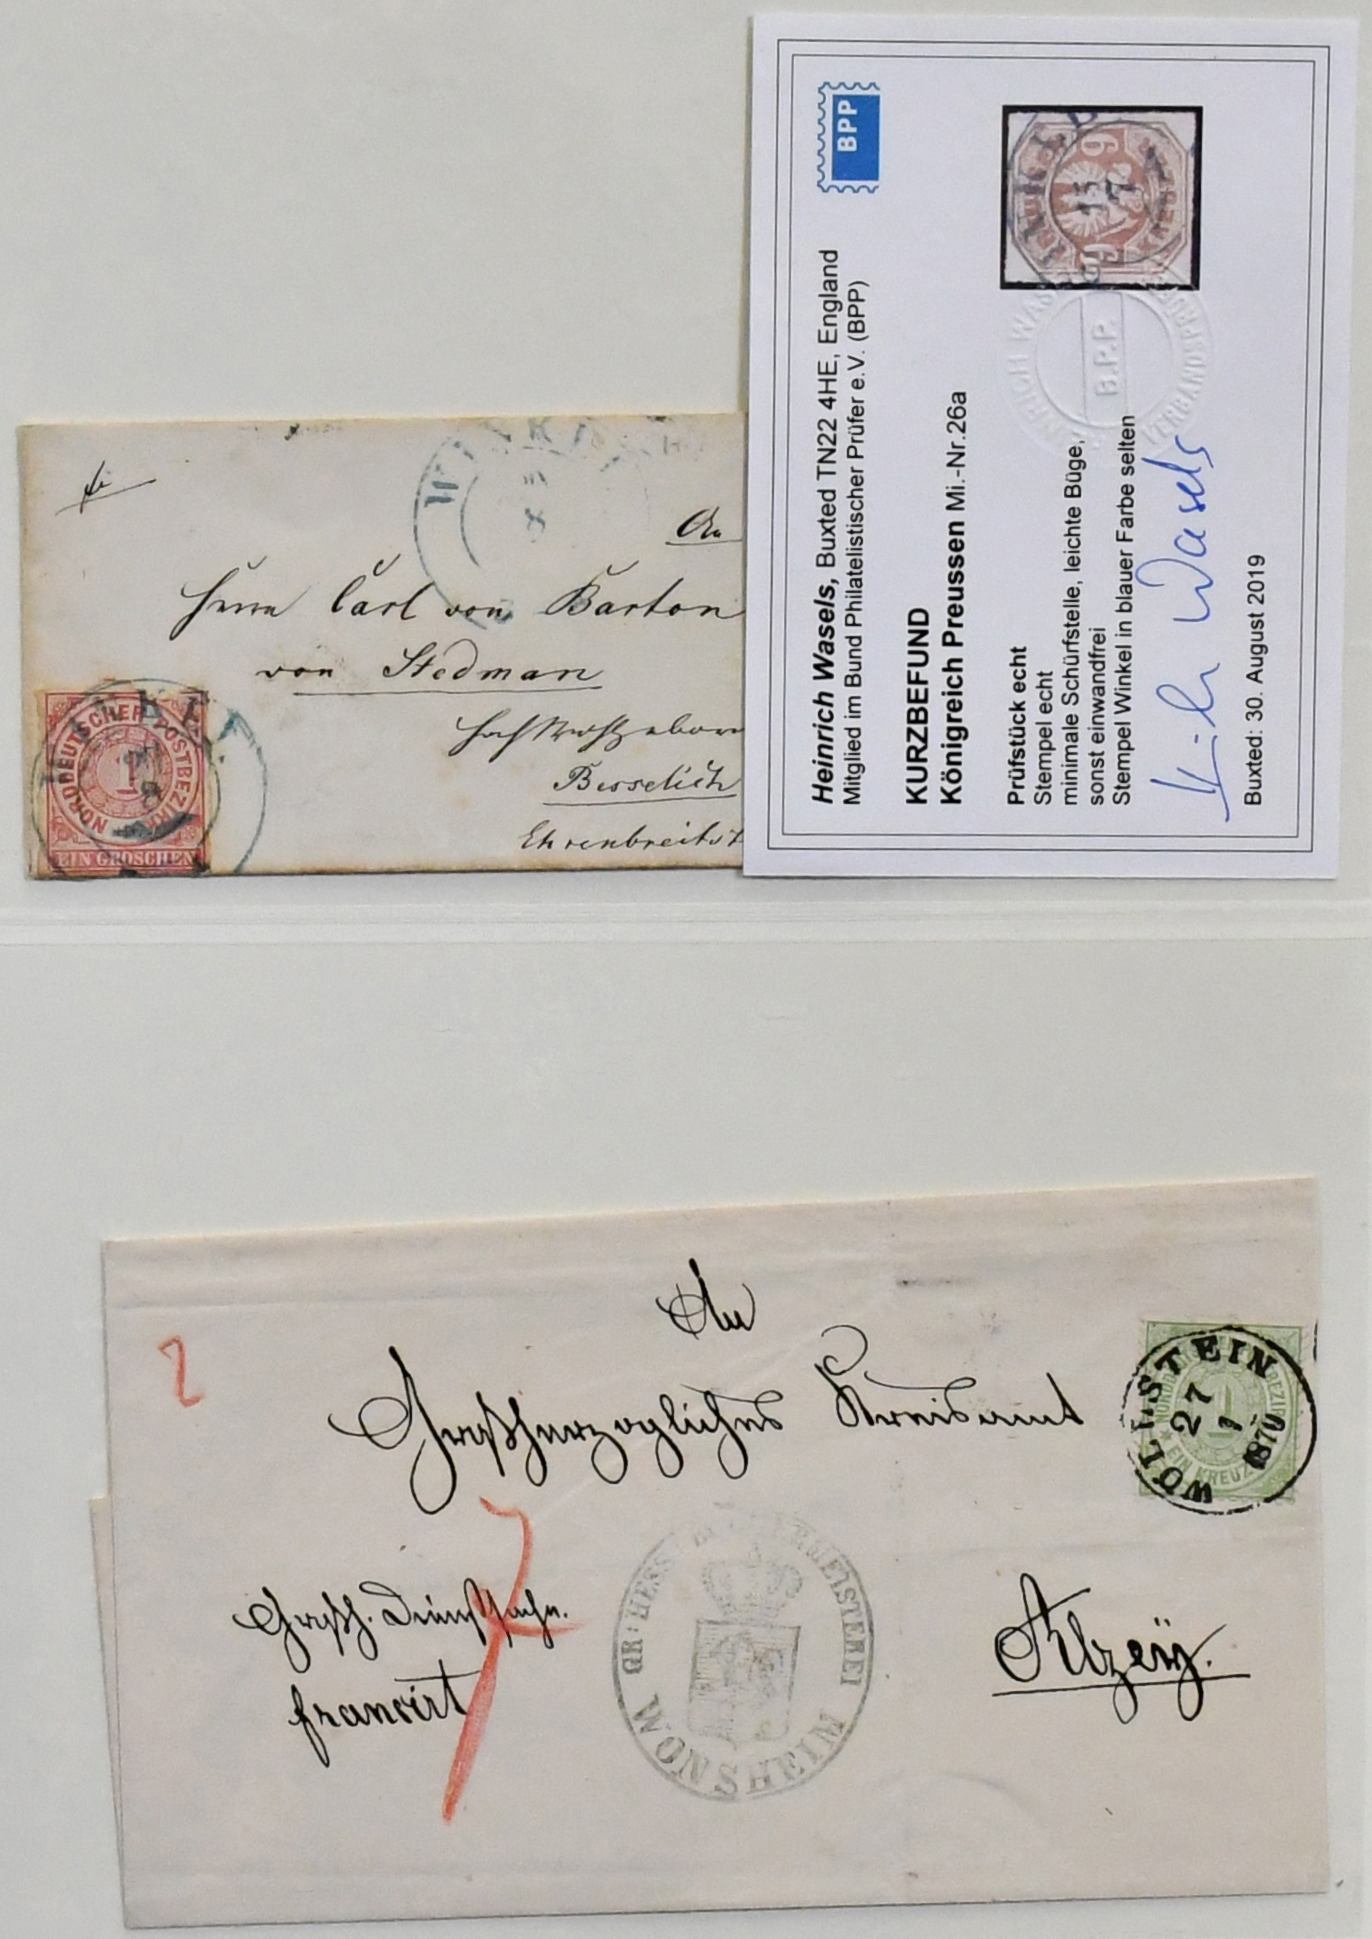 fr
An
Herrn Carl von Barton
von Stedman
Hochwohlgeborn
Besselich
Ehrenbreitst
WINKEL
8
NORDDEUTSCHER POSTBEZIRK
1
EIN GROSCHEN
BPP
Heinrich Wasels, Buxted TN22 4HE, England
Mitglied im Bund Philatelistischer Prüfer e.V. (BPP)
KURZBEFUND
Königreich Preussen Mi.-Nr.26a
Prüfstück echt
Stempel echt
minimale Schürfstelle, leichte Büge,
sonst einwandfrei
Stempel Winkel in blauer Farbe selten
Heinrich Wasels
Buxted: 30. August 2019
HEINRICH WASELS
B.P.P.
VERBANDSPRÜFER
9
9
KREUZER
15
7
2
An
Großherzogliches Kreisamt
Alzey.
Großh. Dienstsache.
francirt
GR: HESS: BÜRGERMEISTEREI
WONSHEIM
WÖLLSTEIN
27
1
1870
NORDDEUTSCHER POSTBEZIRK
1
EIN KREUZER